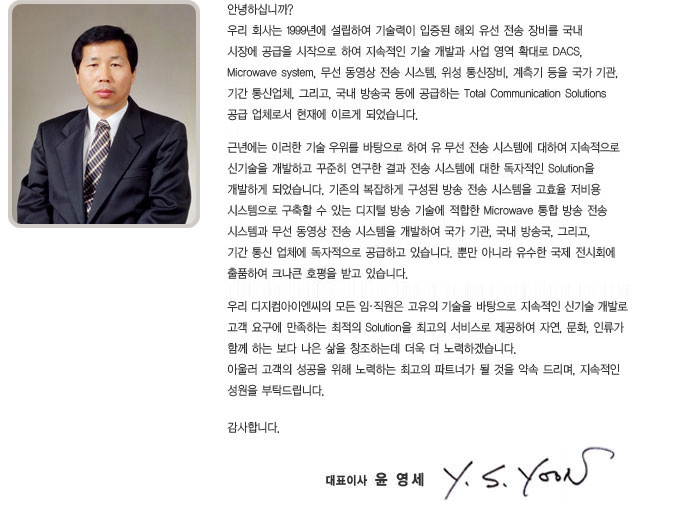 안녕하십니까?
우리 회사는 1999년에 설립하여 기술력이 입증된 해외 유선 전송 장비를 국내
시장에 공급을 시작으로 하여 지속적인 기술 개발과 사업 영역 확대로 DACS,
Microwave system, 무선 동영상 전송 시스템, 위성 통신장비, 계측기 등을 국가 기관,
기간 통신업체, 그리고, 국내 방송국 등에 공급하는 Total Communication Solutions
공급 업체로서 현재에 이르게 되었습니다.
근년에는 이러한 기술 우위를 바탕으로 하여 유 무선 전송 시스템에 대하여 지속적으로
신기술을 개발하고 꾸준히 연구한 결과 전송 시스템에 대한 독자적인 Solution을
개발하게 되었습니다. 기존의 복잡하게 구성된 방송 전송 시스템을 고효율 저비용
시스템으로 구축할 수 있는 디지털 방송 기술에 적합한 Microwave 통합 방송 전송
시스템과 무선 동영상 전송 시스템을 개발하여 국가 기관, 국내 방송국, 그리고,
기간 통신 업체에 독자적으로 공급하고 있습니다. 뿐만 아니라 유수한 국제 전시회에
출품하여 크나큰 호평을 받고 있습니다.
우리 디지컴아이엔씨의 모든 임·직원은 고유의 기술을 바탕으로 지속적인 신기술 개발로
고객 요구에 만족하는 최적의 Solution을 최고의 서비스로 제공하여 자연, 문화, 인류가
함께 하는 보다 나은 삶을 창조하는데 더욱 더 노력하겠습니다.
아울러 고객의 성공을 위해 노력하는 최고의 파트너가 될 것을 약속 드리며, 지속적인
성원을 부탁드립니다.
감사합니다.
대표이사 윤 영세 Y. S. YOON